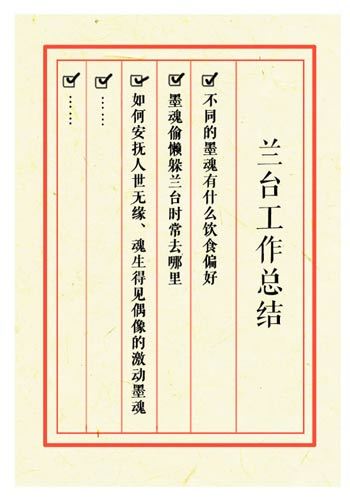 兰台工作总结
不同的墨魂有什么饮食偏好
墨魂偷懒躲兰台时常去哪里
如何安抚人世无缘、魂生得见偶像的激动墨魂
……
……